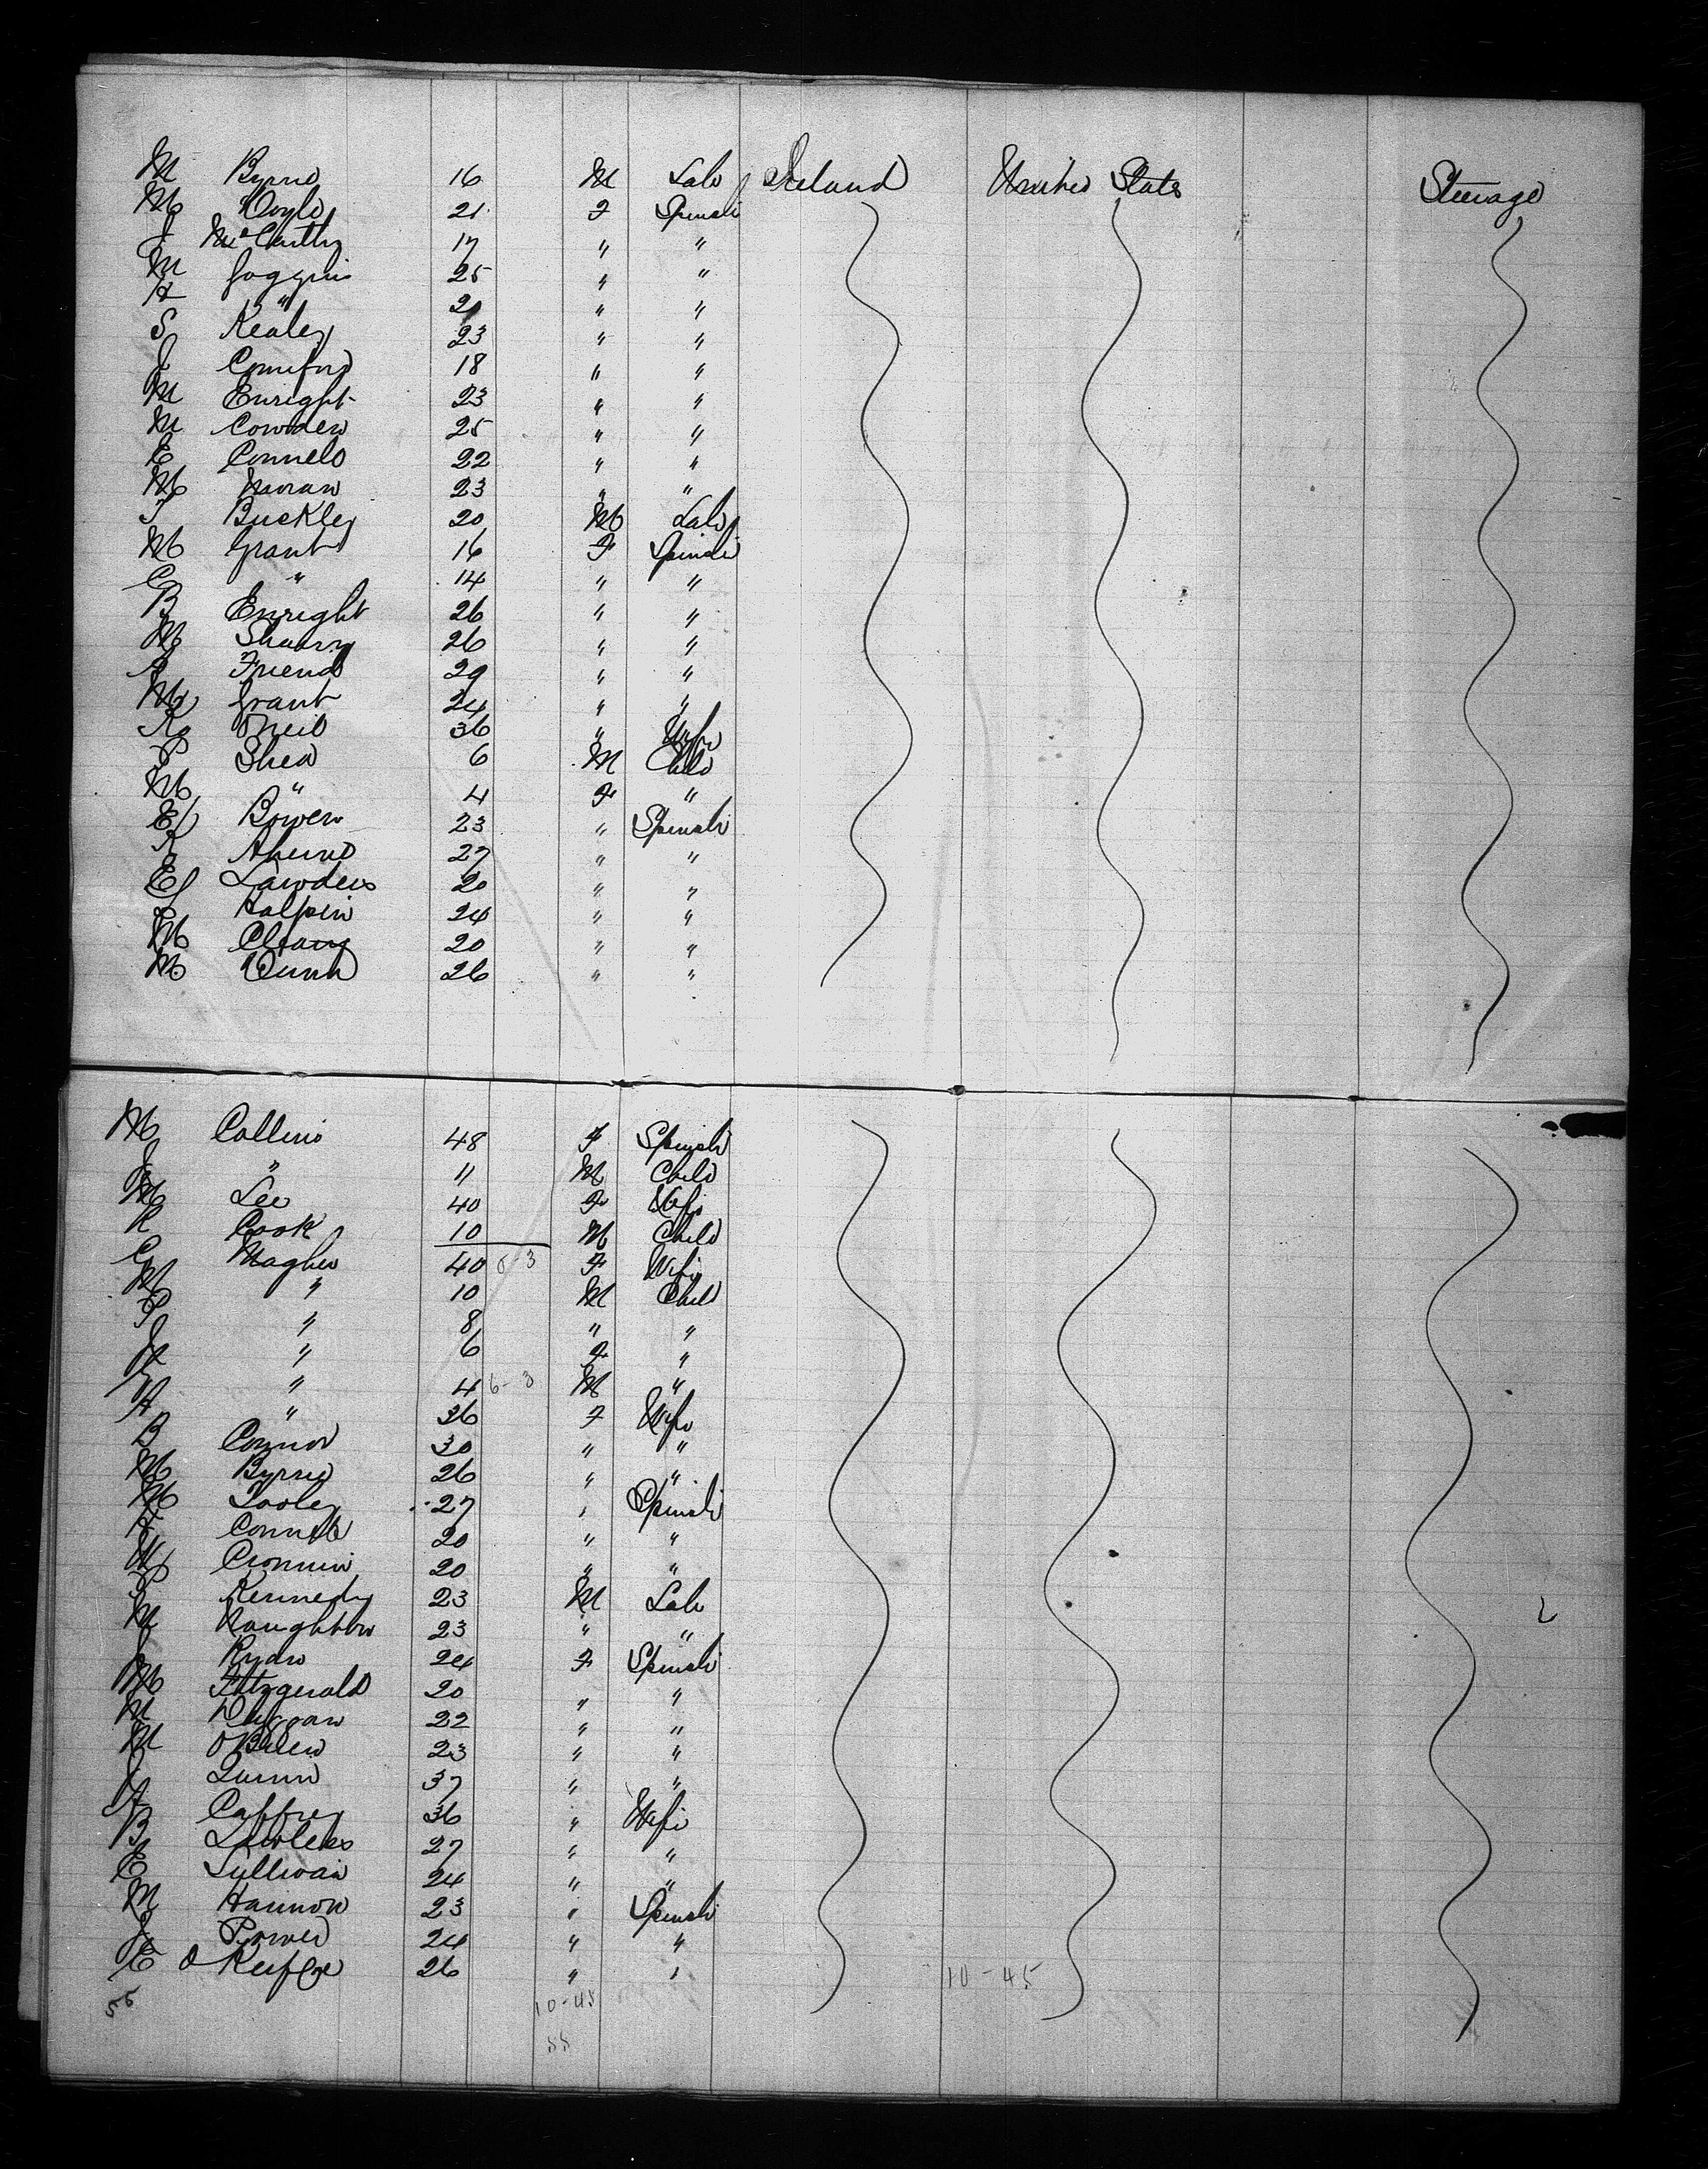 M Byrne 16 M Lab Ireland United States Steerage
M Doyle 21 F Spinst
J McCarthy 17 " "
M Goggin 25 " "
H " 20 " "
S Kealey 23 " "
J Comiford 18 " "
M Enright 23 " "
M Cowden 25 " "
E Connelo 22 " "
M Moran 23 " "
T Buckley 20 M Lab
M Grant 16 F Spinst
C " 14 " "
B Enright 26 " "
M 26 " "
Friend 29 " "
M Grant 24 " "
K ONeil 36 " Wife
P Shea 6 M Child
M " 4 F "
E Bowen 23 " Spinst
K Aherne 27 " "
E Lawders 20 " "
L Halpin 24 " "
M Cleary 20 " "
M Dunn 26 " "
M Collins 48 F Spinst
J " 11 M Child
M Lee 40 F Wife
R Cook 10 M Child
C Magher 40 6-3 F Wife
M " 10 M Child
P " 8 " "
J " 6 F "
" 4 6-3 M "
A " 36 F Wife
B Connor 30 " "
M Byrne 26 " "
M Tooley 27 " Spinst
H Connell 20 " "
M Cronin 20 " "
P Kennedy 23 M Lab
M Naughton 23 " "
J Ryan 24 F Spinst
M Fitzgerald 20 " "
M 22 " "
M OBrien 23 " "
J Quinn 37 " "
A Caffrey 36 " Wife
B Lawless 27 " "
E Sullivan 24 " "
M Hannon 23 " Spinst
J Power 24 " "
E O Keefe 26 " "
55 10-45 10-45
55